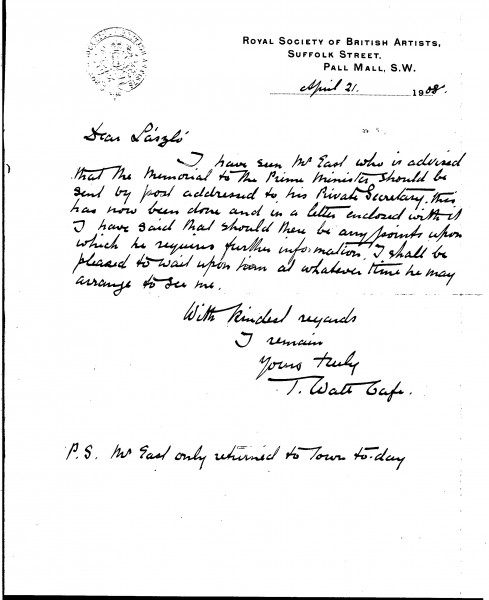 ROYAL SOCIETY OF BRITISH ARTISTS,
SUFFOLK STREET,
PALL MALL, S.W.
April 21. 1908.
Dear László
I have seen Mr East who is advised
that the Memorial to the Prime Minister should be
sent by post addressed to his Private Secretary. this
has now been done and in a letter enclosed with it
I have said that should there be any points upon
which he requires further information. I shall be
pleased to wait upon him at whatever time he may
arrange to see me.
With kindest regards
I remain
Yours truly
T. Watt Cafe.
P.S. Mr East only returned to Town to-day